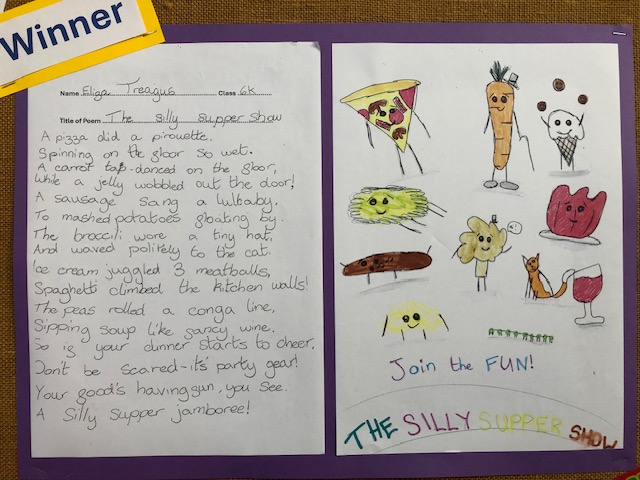 Winner
Name Eliza Treagus Class 6K
Title of Poem The silly supper show
A pizza did a pirouette.
Spinning on the floor so wet.
A carrot tap-danced on the floor,
While a jelly wobbled out the door!
A sausage sang a lullaby.
To mashed potatoes floating by.
The broccili wore a tiny hat,
And waved politely to the cat.
Ice cream juggled 3 meatballs,
Spaghetti climbed the kitchen walls!
The peas rolled a conga line,
Sipping soup like fancy wine.
So if your dinner starts to cheer,
Don't be scared-its' party gear!
Your food's having fun, you see.
A Silly Supper jamboree!
Join the FUN!
THE SILLY SUPPER SHOW